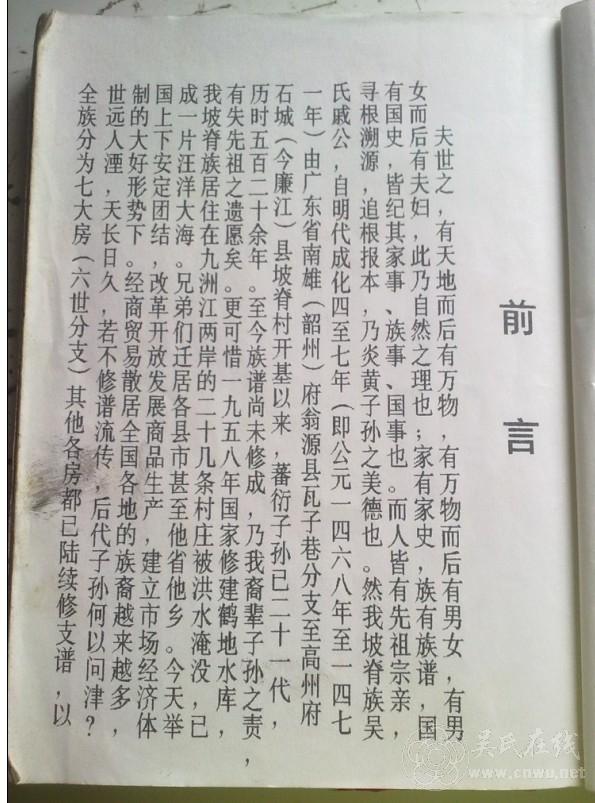 前言
夫世之，有天地而后有万物，有万物而后有男女，有男
女而后有夫妇，此乃自然之理也；家有家史，族有族谱，国
有国史，皆纪其家事、族事、国事也。而人皆有先祖宗亲，
寻根溯源，追根报本，乃炎黄子孙之美德也。然我坡脊族吴
氏戚公，自明代成化四至七年（即公元一四六八年至一四七
一年）由广东省南雄（韶州）府翁源县瓦子巷分支至高州府
石城（今廉江）县坡脊村开基以来，蕃衍子孙已二十一代，
历时五百二十余年。至今族谱尚未修成，乃我裔辈子孙之责，
有失先祖之遗愿矣。更可惜一九五八年国家修建鹤地水库，
我坡脊族居住在九洲江两岸的二十几条村庄被洪水淹没，已
成一片汪洋大海。兄弟们迁居各县市甚至他省他乡。今天举
国上下安定团结，改革开放发展商品生产，建立市场经济体
制的大好形势下。经商贸易散居全国各地的族裔越来越多，
世远人湮，天长日久，若不修谱流传，后代子孙何以问津？
全族分为七大房（六世分支）其他各房都已陆续修支谱，以
吴氏在线
www.cnwu.net